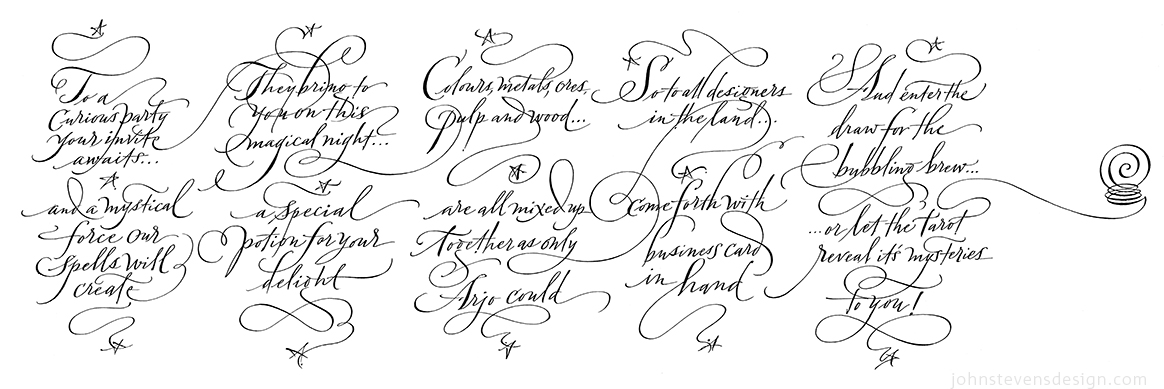 To a
Curious party
your invite
awaits...
and a mystical
force our
spells will
create
They bring to
you on this
magical night...
a special
potion for your
delight
Colours, metals, ores,
pulp and wood...
are all mixed up
Together as only
Arjo could
So to all designers
in the land...
come forth with
business card
in hand
And enter the
draw for the
bubbling brew...
...or let the Tarot
reveal it's mysteries
to you!
johnstevensdesign.com